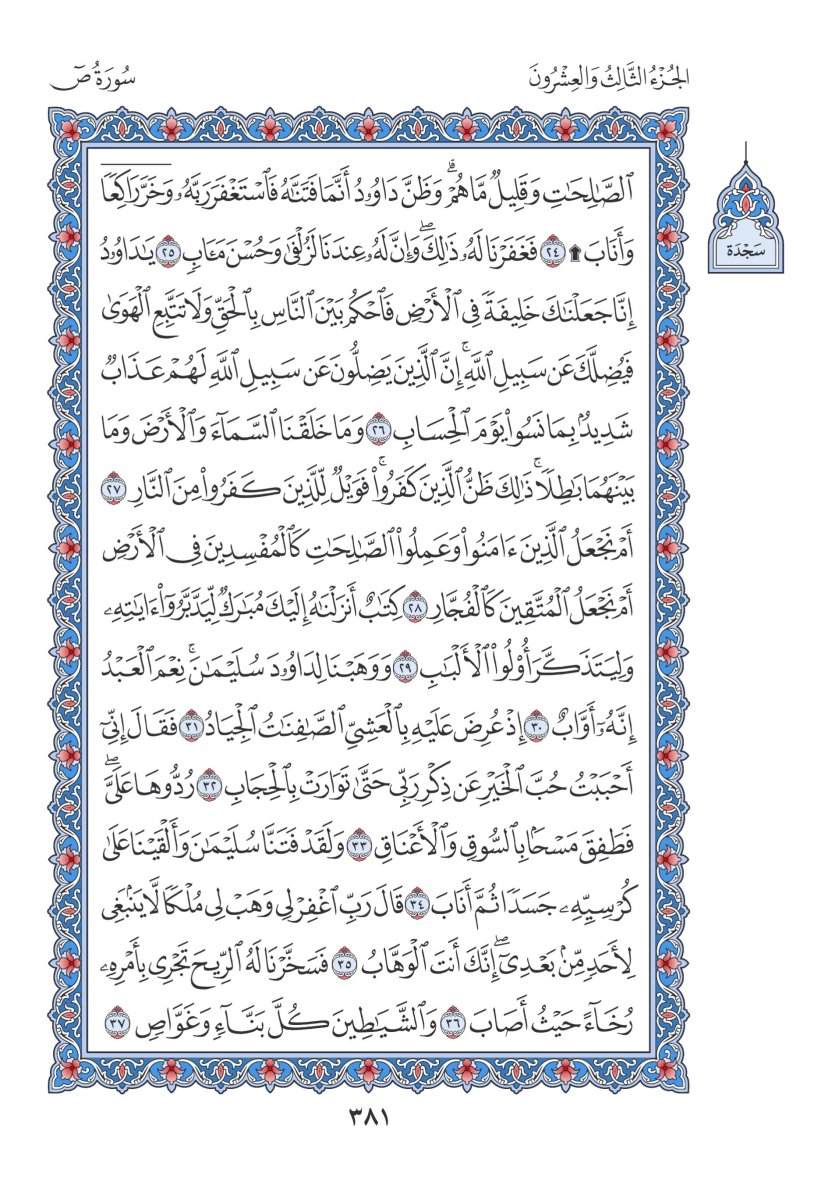 الجُزْءُ الثَّالِثُ وَالعِشْرُونَ
سُورَةُ صٓ
ٱلصَّٰلِحَٰتِ وَقَلِيلٞ مَّا هُمۡۗ وَظَنَّ دَاوُۥدُ أَنَّمَا فَتَنَّٰهُ فَٱسۡتَغۡفَرَ رَبَّهُۥ وَخَرَّۤ رَاكِعٗاۤ
وَأَنَابَ ۩ ٢٤ فَغَفَرۡنَا لَهُۥ ذَٰلِكَۖ وَإِنَّ لَهُۥ عِندَنَا لَزُلۡفَىٰ وَحُسۡنَ مَـَٔابٖ ٢٥ يَٰدَاوُۥدُ
سَجْدَة
إِنَّا جَعَلۡنَٰكَ خَلِيفَةٗ فِي ٱلۡأَرۡضِ فَٱحۡكُم بَيۡنَ ٱلنَّاسِ بِٱلۡحَقِّ وَلَا تَتَّبِعِ ٱلۡهَوَىٰ
فَيُضِلَّكَ عَن سَبِيلِ ٱللَّهِۚ إِنَّ ٱلَّذِينَ يَضِلُّونَ عَن سَبِيلِ ٱللَّهِ لَهُمۡ عَذَابٞ
شَدِيدُۢ بِمَا نَسُواْ يَوۡمَ ٱلۡحِسَابِ ٢٦ وَمَا خَلَقۡنَا ٱلسَّمَآءَ وَٱلۡأَرۡضَ وَمَا
بَيۡنَهُمَا بَٰطِلٗاۚ ذَٰلِكَ ظَنُّ ٱلَّذِينَ كَفَرُواْۚ فَوَيۡلٞ لِّلَّذِينَ كَفَرُواْ مِنَ ٱلنَّارِ ٢٧
أَمۡ نَجۡعَلُ ٱلَّذِينَ ءَامَنُواْ وَعَمِلُواْ ٱلصَّٰلِحَٰتِ كَٱلۡمُفۡسِدِينَ فِي ٱلۡأَرۡضِ
أَمۡ نَجۡعَلُ ٱلۡمُتَّقِينَ كَٱلۡفُجَّارِ ٢٨ كِتَٰبٌ أَنزَلۡنَٰهُ إِلَيۡكَ مُبَٰرَكٞ لِّيَدَّبَّرُوٓاْ ءَايَٰتِهِۦ
وَلِيَتَذَكَّرَ أُوْلُواْ ٱلۡأَلۡبَٰبِ ٢٩ وَوَهَبۡنَا لِدَاوُۥدَ سُلَيۡمَٰنَۚ نِعۡمَ ٱلۡعَبۡدُ
إِنَّهُۥٓ أَوَّابٌ ٣٠ إِذۡ عُرِضَ عَلَيۡهِ بِٱلۡعَشِيِّ ٱلصَّٰفِنَٰتُ ٱلۡجِيَادُ ٣١ فَقَالَ إِنِّيٓ
أَحۡبَبۡتُ حُبَّ ٱلۡخَيۡرِ عَن ذِكۡرِ رَبِّي حَتَّىٰ تَوَارَتۡ بِٱلۡحِجَابِ ٣٢ رُدُّوهَا عَلَيَّۖ
فَطَفِقَ مَسۡحَۢا بِٱلسُّوقِ وَٱلۡأَعۡنَاقِ ٣٣ وَلَقَدۡ فَتَنَّا سُلَيۡمَٰنَ وَأَلۡقَيۡنَا عَلَىٰ
كُرۡسِيِّهِۦ جَسَدٗا ثُمَّ أَنَابَ ٣٤ قَالَ رَبِّ ٱغۡفِرۡ لِي وَهَبۡ لِي مُلۡكٗا لَّا يَنۢبَغِي
لِأَحَدٖ مِّنۢ بَعۡدِيٓۖ إِنَّكَ أَنتَ ٱلۡوَهَّابُ ٣٥ فَسَخَّرۡنَا لَهُ ٱلرِّيحَ تَجۡرِي بِأَمۡرِهِۦ
رُخَآءً حَيۡثُ أَصَابَ ٣٦ وَٱلشَّيَٰطِينَ كُلَّ بَنَّآءٖ وَغَوَّاصٖ ٣٧
٣٨١